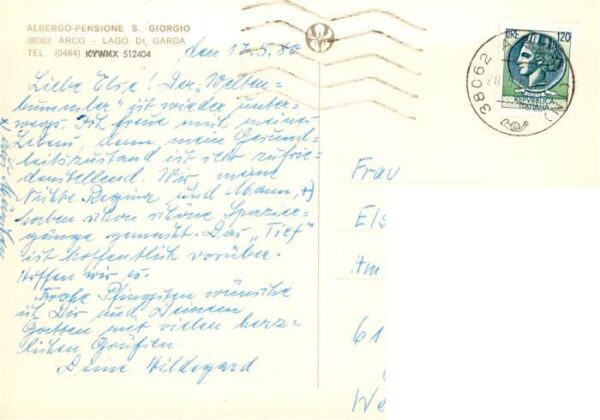 ALBERGO-PENSIONE S. GIORGIO
38062 ARCO - LAGO DI GARDA
TEL. (0464) 512404
den 17.5.80
Liebe Else! Der "Welten-
bummler" ist wieder unter-
wegs. Ich freue mich meines
Lebens, denn mein Gesund-
heitszustand ist sehr zufrie-
denstellend. Wir, meine
Nichte Regina und Mann, +)
haben schon schöne Spazier-
gänge gemacht. Das "Tief"
ist hoffentlich vorüber.
Hoffen wir es.
Frohe Pfingsten wünsche
ich Dir und Deinem
Gatten mit vielen herz-
lichen Grüßen.
Deine Hildegard
LIRE 120
REPUBBLICA
ITALIANA
38062 A
Frau
Els
Am
61
We